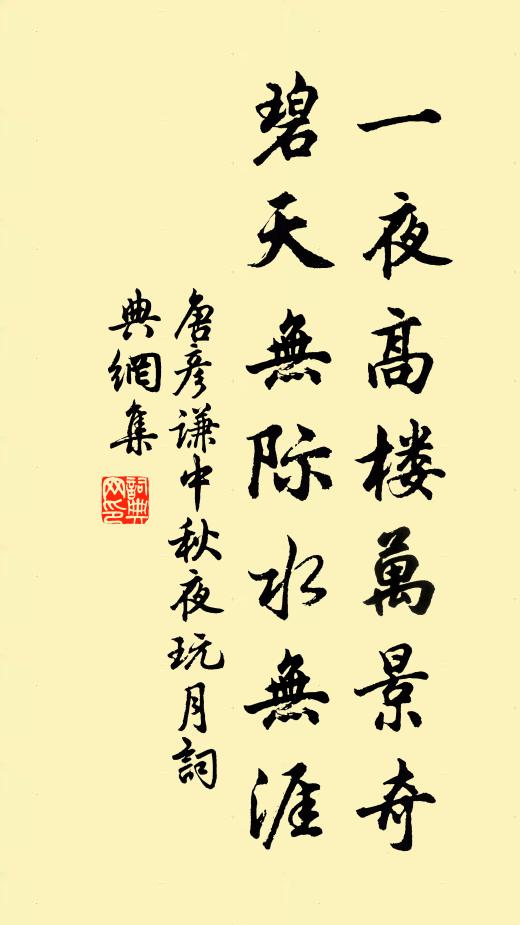 一夜高楼萬景奇
碧天無际水無涯
唐彦谦中秋夜玩月詞
典網集
詞典网印